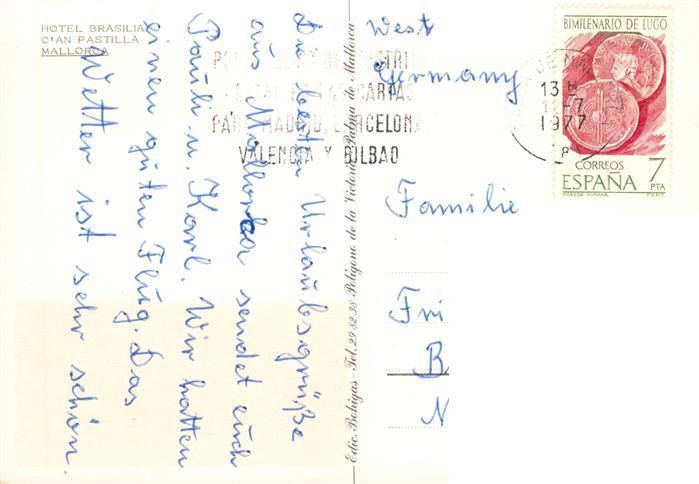 HOTEL BRASILIA
C'AN PASTILLA
MALLORCA
Die besten Urlaubsgrüße
aus Mallorca sendet euch
Paul u. Karl. Wir hatten
einen guten Flug. Das
Wetter ist sehr schön.
Edic. Bohigas - Tel. 29 82 38 Polígono de la Victoria Palma de Mallorca
CARTAS
PARA MADRID, BARCELONA,
VALENCIA Y BILBAO
West
Germany
Familie
Fri
B
N
BIMILENARIO DE LUGO
1977
CORREOS
ESPAÑA
7
PTA
MONEDA ROMANA
F.N.M.T.